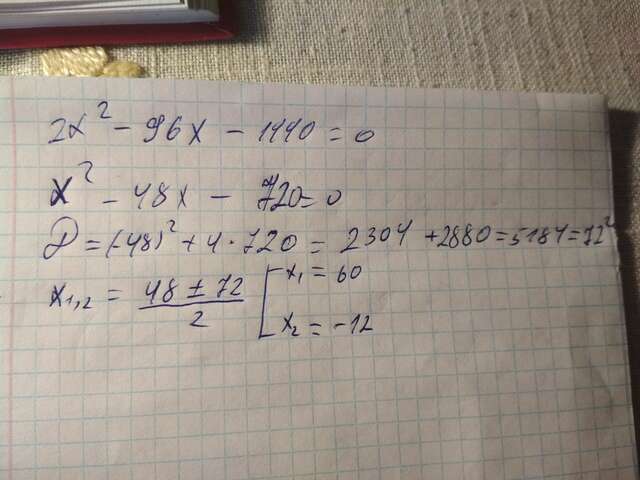 2x² - 96x - 1440 = 0
x² - 48x - 720 = 0
D = (-48)² + 4 · 720 = 2304 + 2880 = 5184 = 72²
x₁,₂ = (48 ± 72)/2 [ x₁ = 60
x₂ = -12